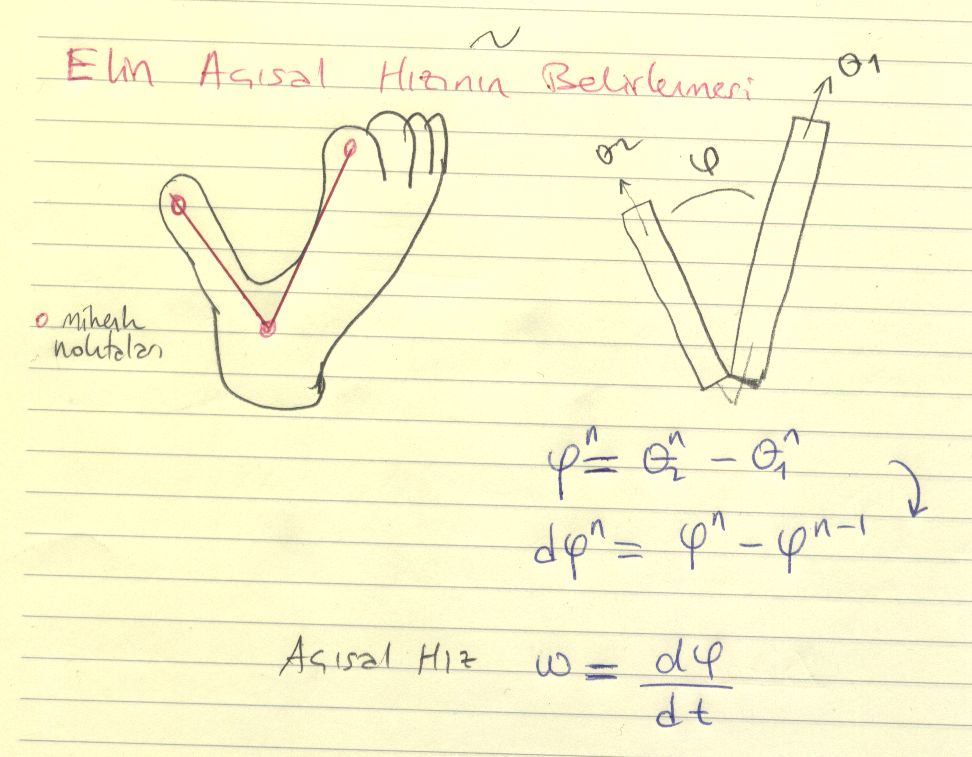 Elin Açısal Hızının Belirlemesi
θ1
θ2
φ
mihenk
noktaları
φⁿ = θ₂ⁿ - θ₁ⁿ
dφⁿ = φⁿ - φⁿ⁻¹
Açısal Hız w = dφ/dt